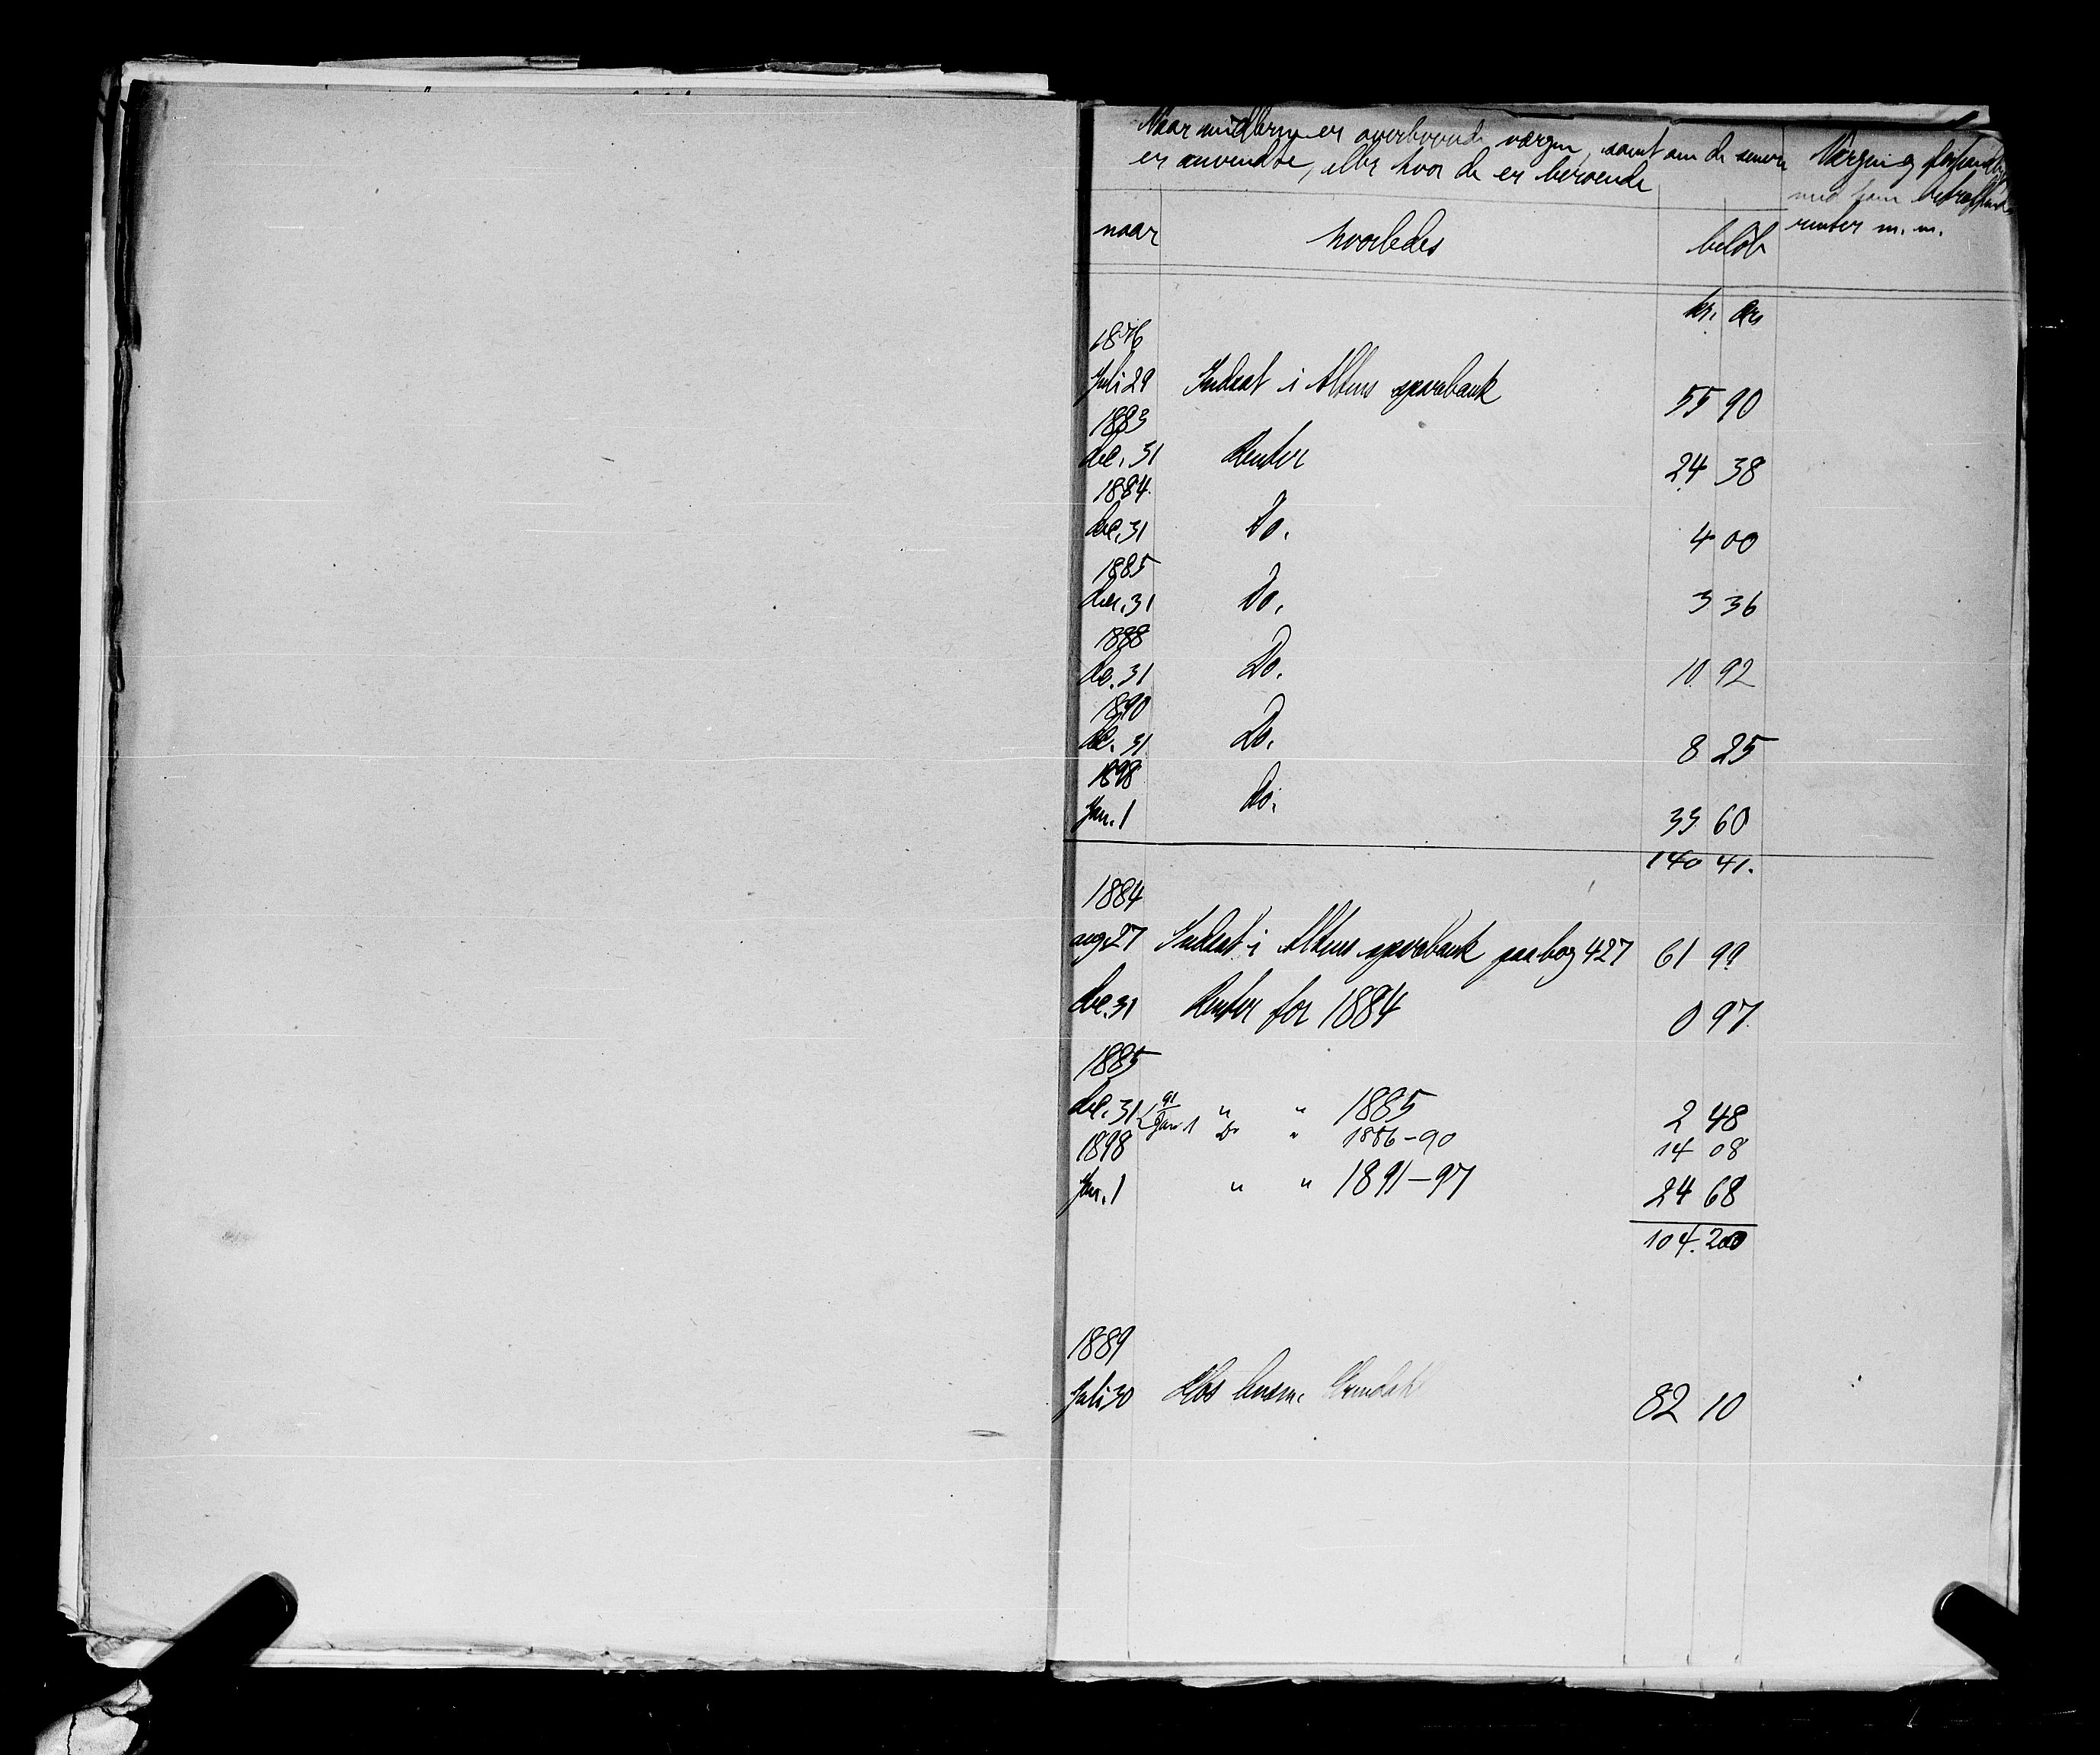 Naar midlerne er overleverede værgen, samt om de senere
er anvendte, eller hvor de er beroende
Værgen og
med ham betræffende
renter m. m.
naar hvorledes beløb
kr. øre
1876
Juli 29 Indsat i Altens sparebank 55 90
1883
Dec. 31 Renter 24 38
1884
Dec. 31 Do. 4 00
1885
Dec. 31 Do. 3 36
1888
Dec. 31 Do. 10 92
1890
Dec. 31 Do. 8 25
1898
Jan. 1 Do. 33 60
140 41.
1884
aug. 27 Indsat i Altens sparebank paa bog 427 61 99
Dec. 31 Renter for 1884 0 97
1885
Dec. 31 " " 1885 2 48
91 Jan 1 Do " 1886-90 14 08
1898
Jan. 1 " " 1891-97 24 68
104. 20
1889
Juli 30 Hos lensm. 82 10